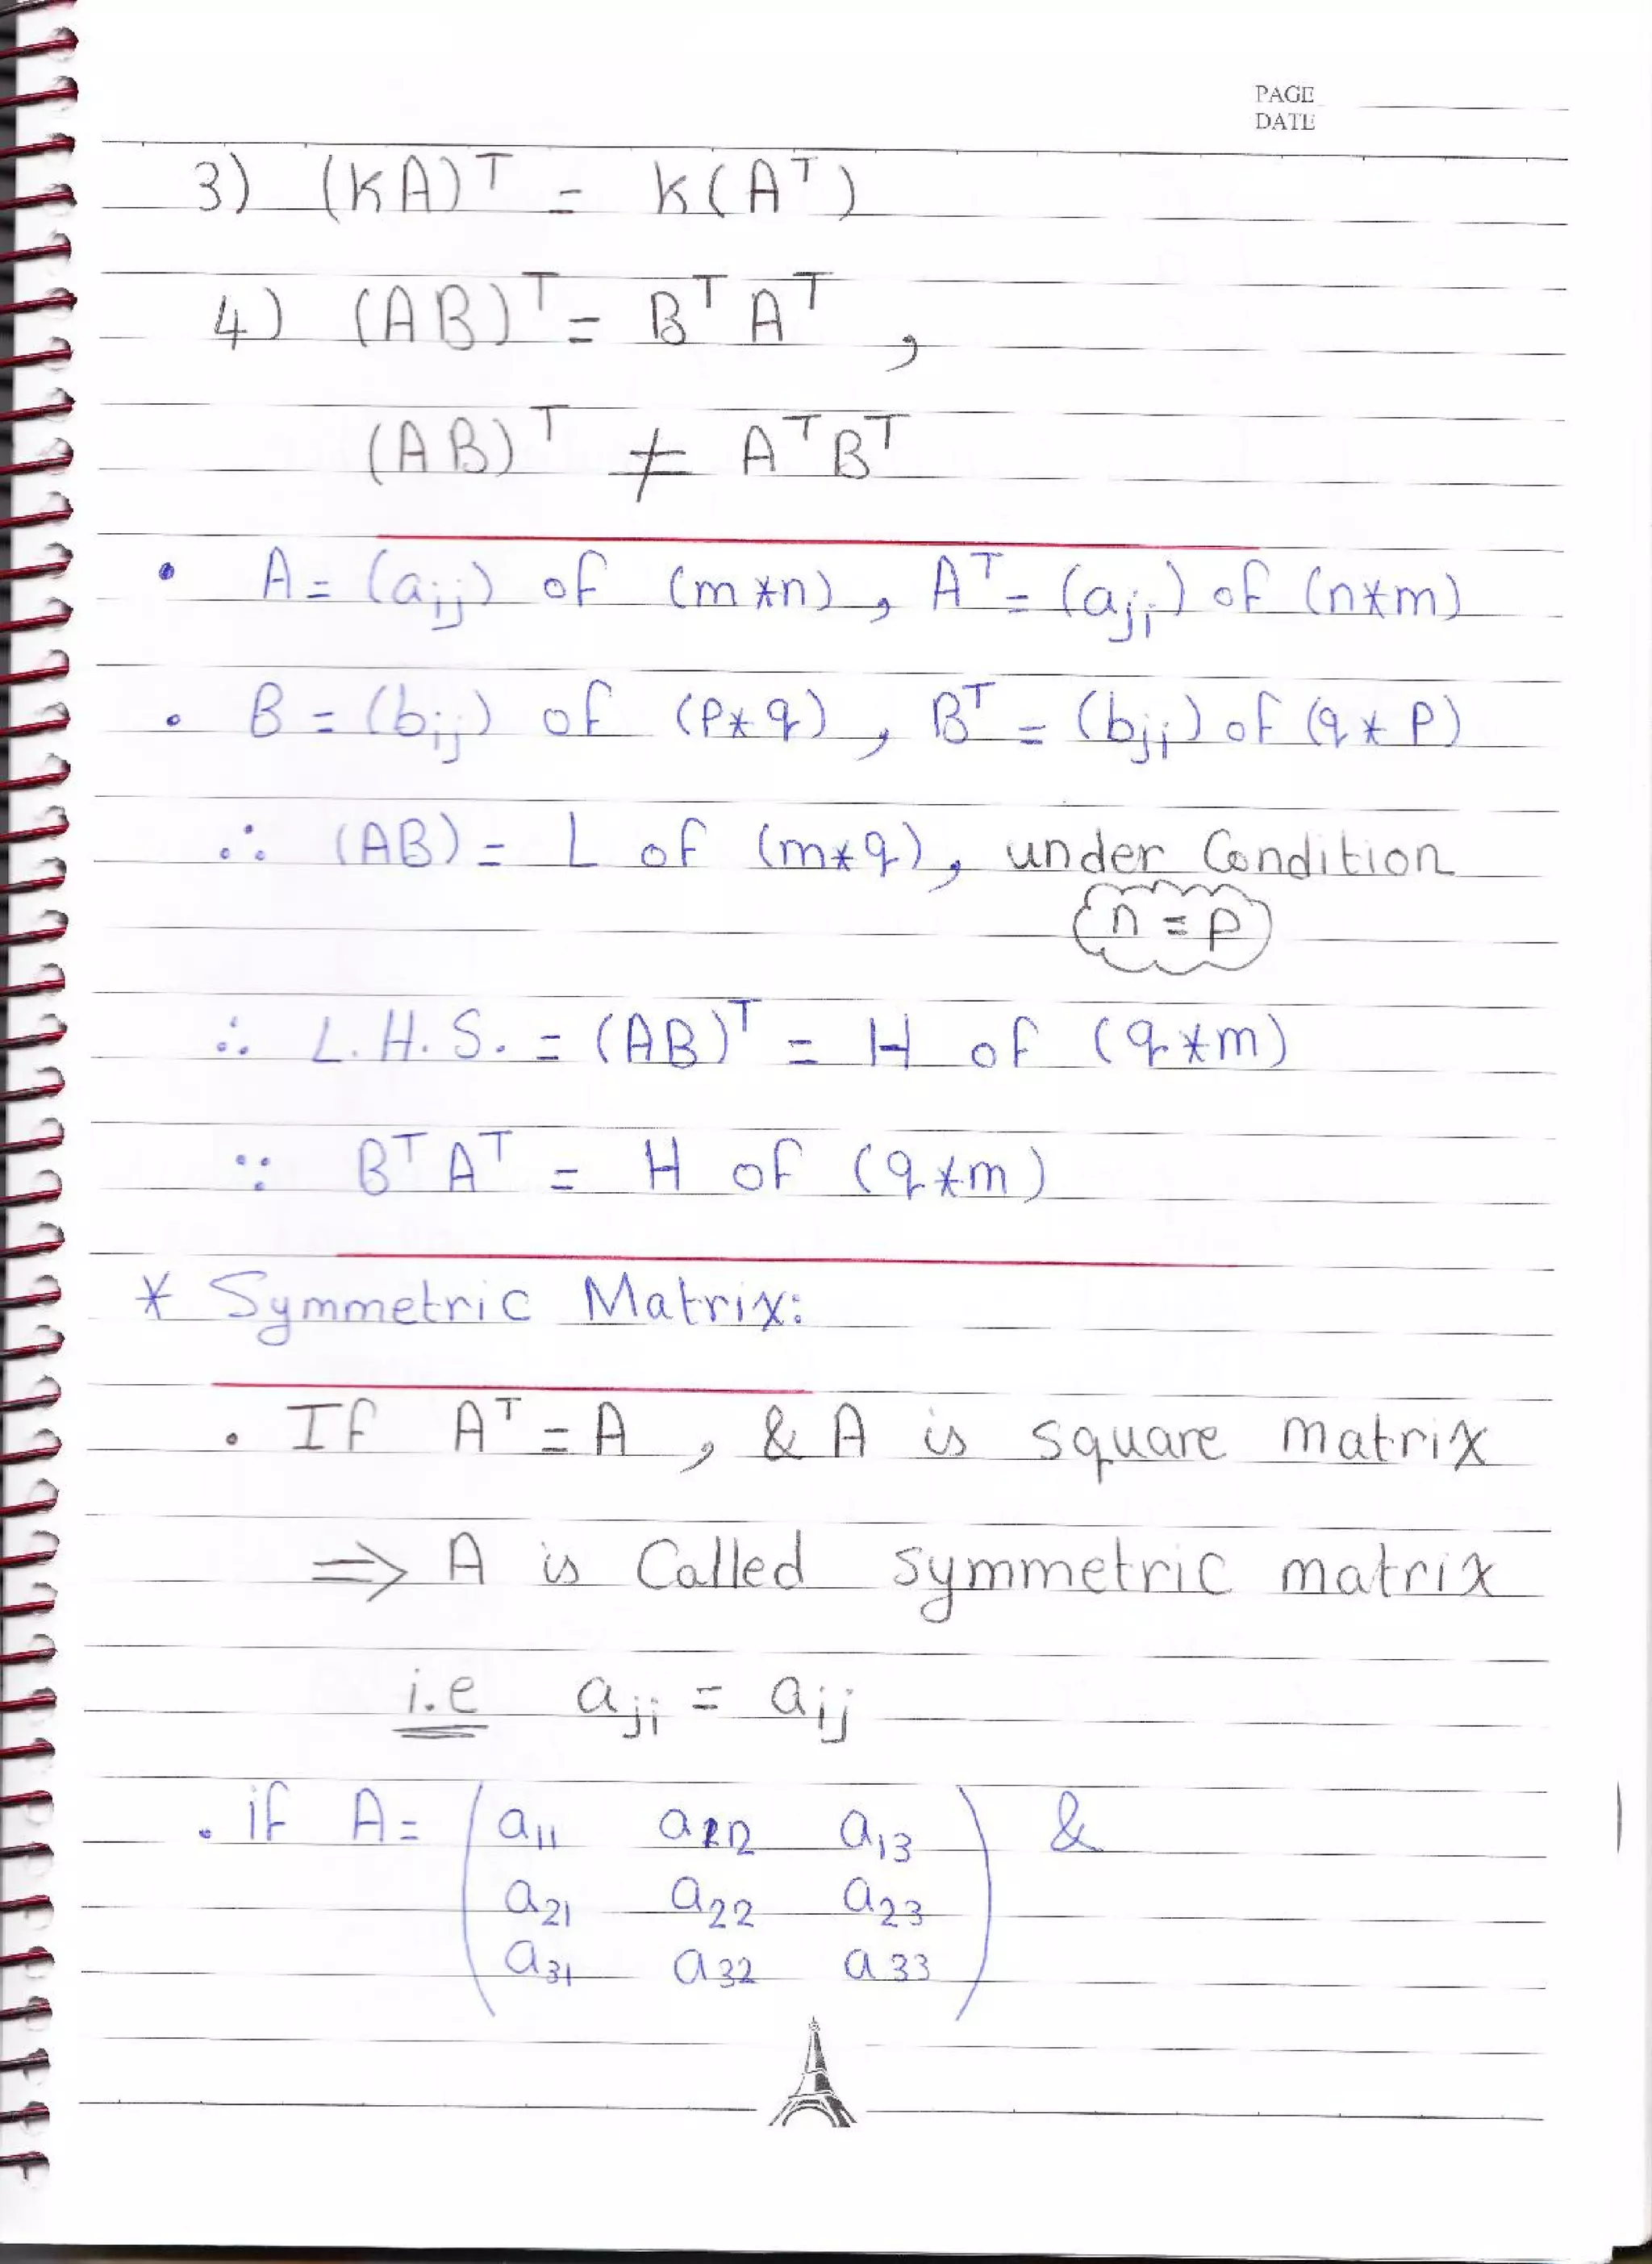 PAGE
DATE
3) (KA)ᵀ = K(Aᵀ)
4) (AB)ᵀ = Bᵀ Aᵀ ,
(AB)ᵀ ≠ Aᵀ Bᵀ
• A = (aᵢⱼ) of (m*n) , Aᵀ = (aⱼᵢ) of (n*m)
• B = (bᵢⱼ) of (p*q) , Bᵀ = (bⱼᵢ) of (q*p)
∴ (AB) = L of (m*q) , under Condition
n = p
∴ L.H.S. = (AB)ᵀ = H of (q*m)
∵ Bᵀ Aᵀ = H of (q*m)
* Symmetric Matrix:
• If Aᵀ = A , & A is square matrix
⇒ A is Called symmetric matrix
i.e aⱼᵢ = aᵢⱼ
• if A = ( a₁₁ a₁₂ a₁₃ ) &
a₂₁ a₂₂ a₂₃
a₃₁ a₃₂ a₃₃